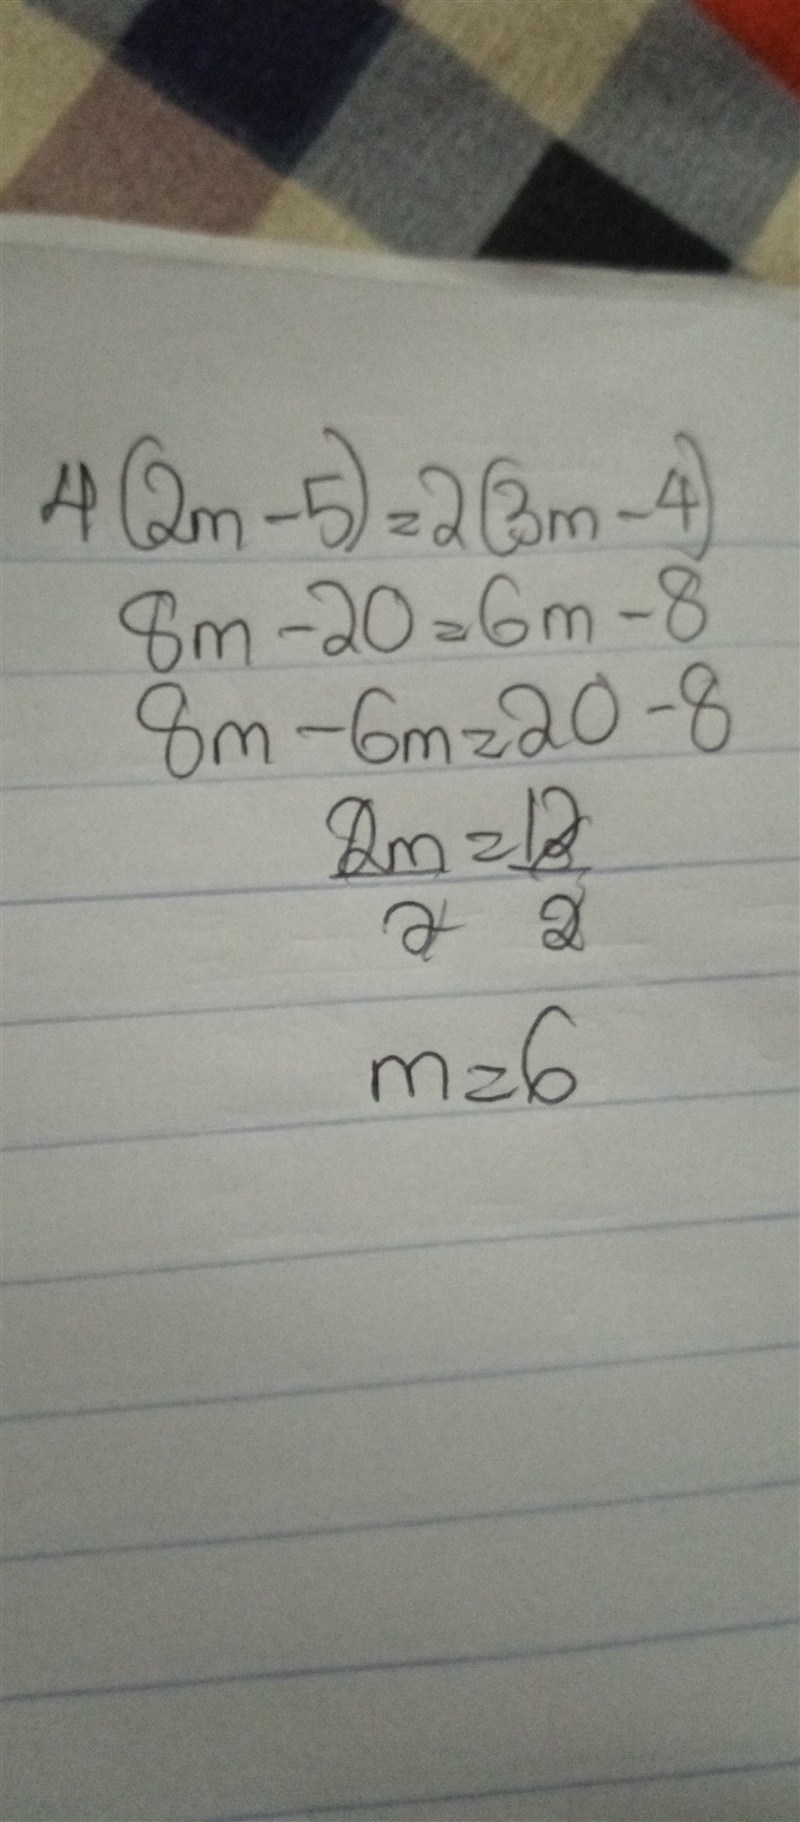 4(2m-5)=2(3m-4)
8m-20=6m-8
8m-6m=20-8
2m=12
2 2
m=6